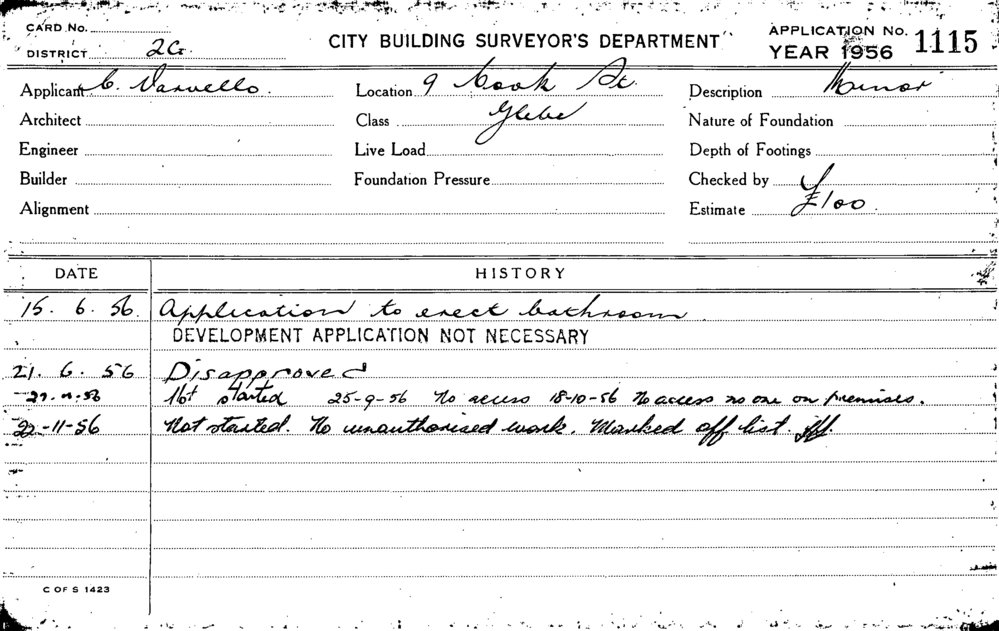 CARD No.
DISTRICT 2G
CITY BUILDING SURVEYOR'S DEPARTMENT
APPLICATION No. 1115
YEAR 1956
Applicant C. Varvello.
Location 9 Cook St.
Description Minor
Architect
Class Glebe
Nature of Foundation
Engineer
Live Load
Depth of Footings
Builder
Foundation Pressure
Checked by
Alignment
Estimate £100.
DATE HISTORY
15. 6. 56. Application to erect bathroom
DEVELOPMENT APPLICATION NOT NECESSARY
21. 6. 56 Disapproved
Not started 25-9-56 No access 18-10-56 No access no one on premises.
22-11-56 Not started. No unauthorised work. Marked off list.
C OF S 1423